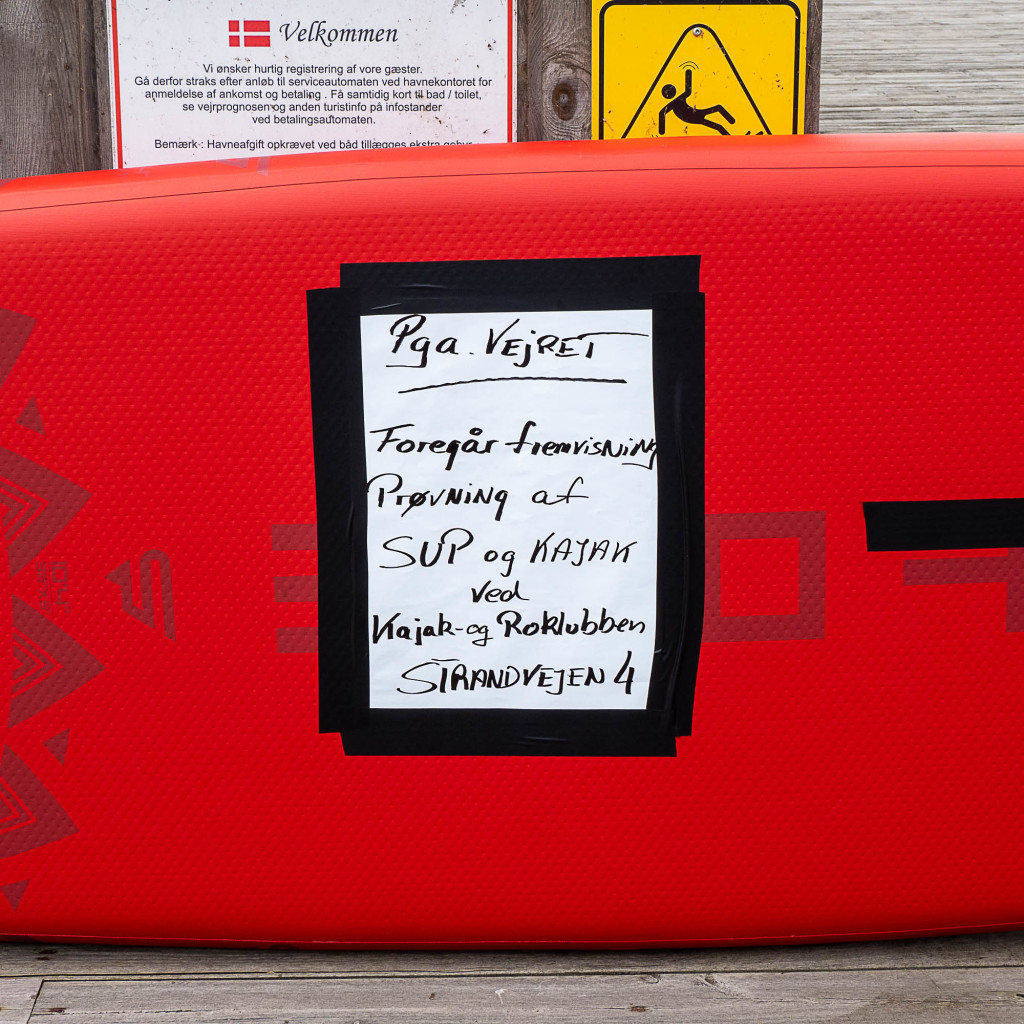 Velkommen
Vi ønsker hurtig registrering af vore gæster.
Gå derfor straks efter anløb til serviceautomaten ved havnekontoret for
anmeldelse af ankomst og betaling . Få samtidig kort til bad / toilet,
se vejrprognosen og anden turistinfo på infostander
ved betalingsautomaten.
Bemærk : Havneafgift opkrævet ved båd tillægges ekstra gebyr
Pga. VEJRET
Foregår fremvisning
Prøvning af
SUP og KAJAK
ved
Kajak-og Roklubben
STRANDVEJEN 4